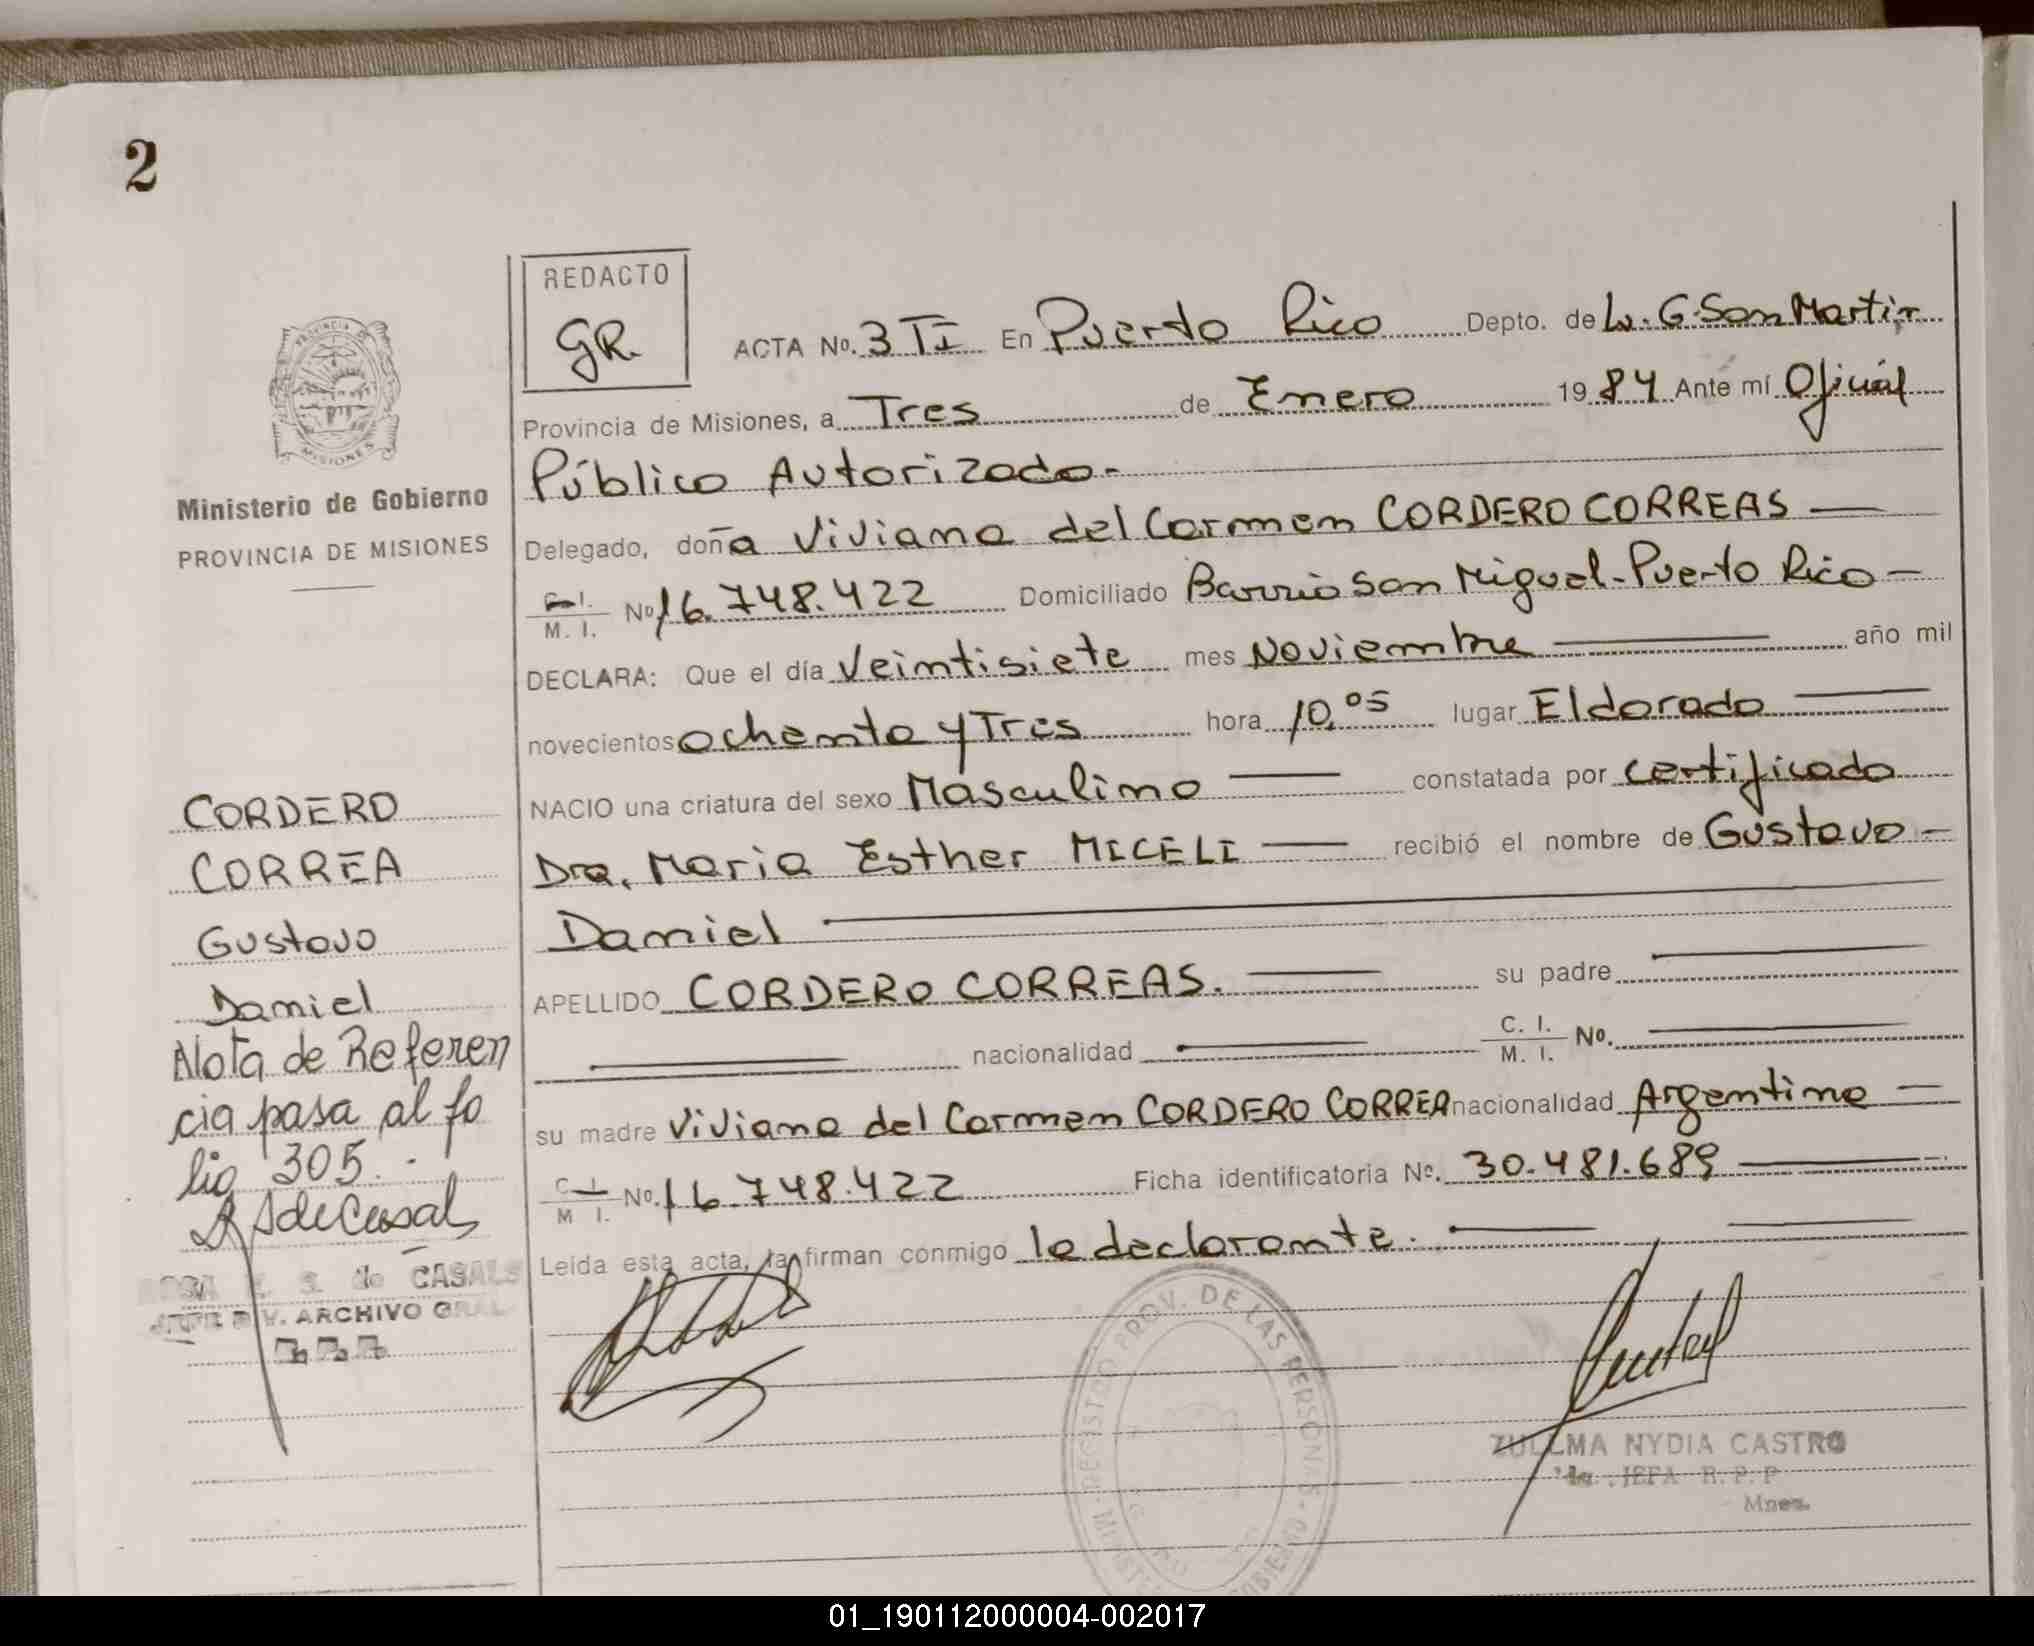 2
REDACTO
GR.
ACTA No. 3 TI En Puerto Rico Depto. de L. G. San Martin
Provincia de Misiones, a Tres de Enero 1984 Ante mí Oficial
Público Autorizado.-
Delegado, doña Viviana del Carmen CORDERO CORREAS
C. I. M. I. No 16.748.422 Domiciliado Barrio San Miguel-Puerto Rico-
DECLARA: Que el día Veintisiete mes Noviembre año mil
novecientos ochenta y Tres hora 10,05 lugar Eldorado
NACIO una criatura del sexo Masculino constatada por certificado
Dra. Maria Esther MICELI recibió el nombre de Gustavo-
Daniel
APELLIDO CORDERO CORREAS. su padre
nacionalidad C. I. M. I. No.
su madre Viviana del Carmen CORDERO CORREA nacionalidad Argentina
C. I. M I. No. 16.748.422 Ficha identificatoria No. 30.481.689
Leída esta acta, la firman conmigo la declarante.
PROVINCIA DE MISIONES
Ministerio de Gobierno
PROVINCIA DE MISIONES
CORDERO
CORREA
Gustavo
Daniel
Nota de Referen
cia pasa al fo
lio 305.-
de CASALS
ARCHIVO GRAL
PROV. DE LAS PERSONAS
ZULLMA NYDIA CASTRO
JEFA R. P. P
Mnes.
01_190112000004-002017